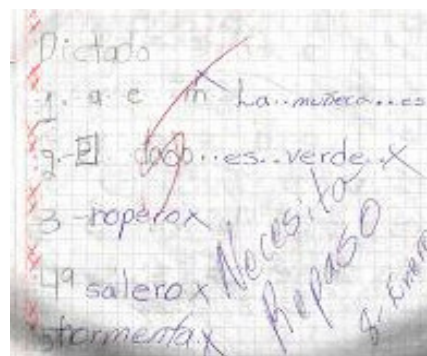 Dictado
1. a e m La..muñeca...es
2.-El dado..es..verde..X
3-roperox
4º salerox
5tormentax
Necesita
Repaso
8-Enero